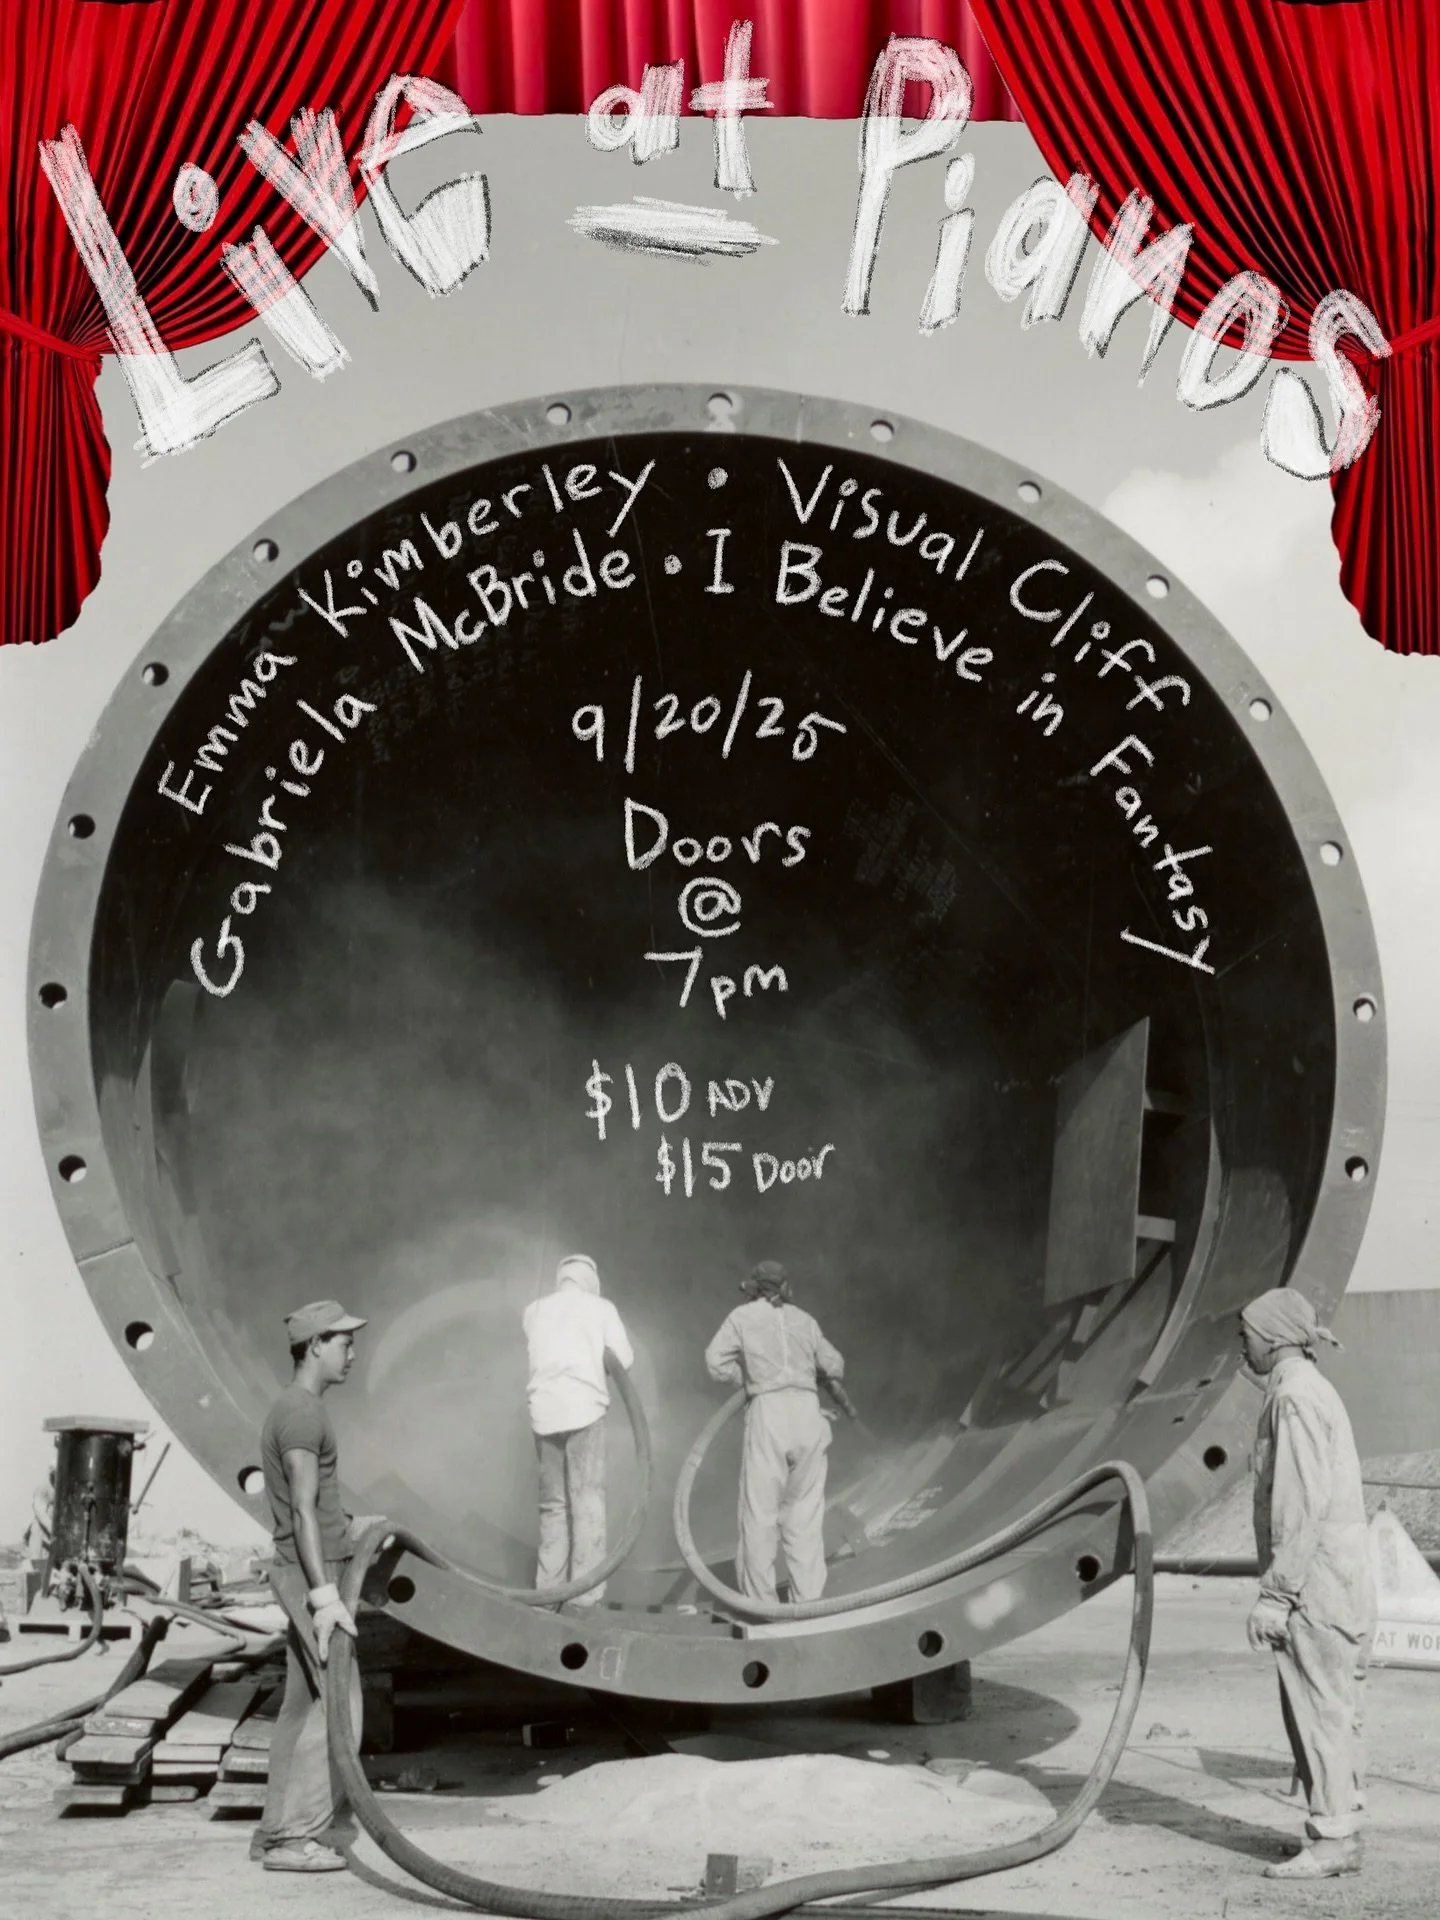 Live at Pianos
Emma Kimberley • Visual Cliff
Gabriela McBride • I Believe in Fantasy
9/20/25
Doors
@
7pm
$10 ADV
$15 Door
AT WOR